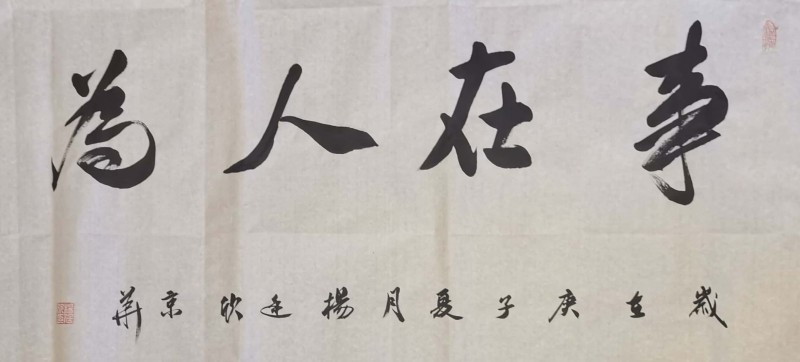 事在人為
歲在庚子夏月楊廷欣京華